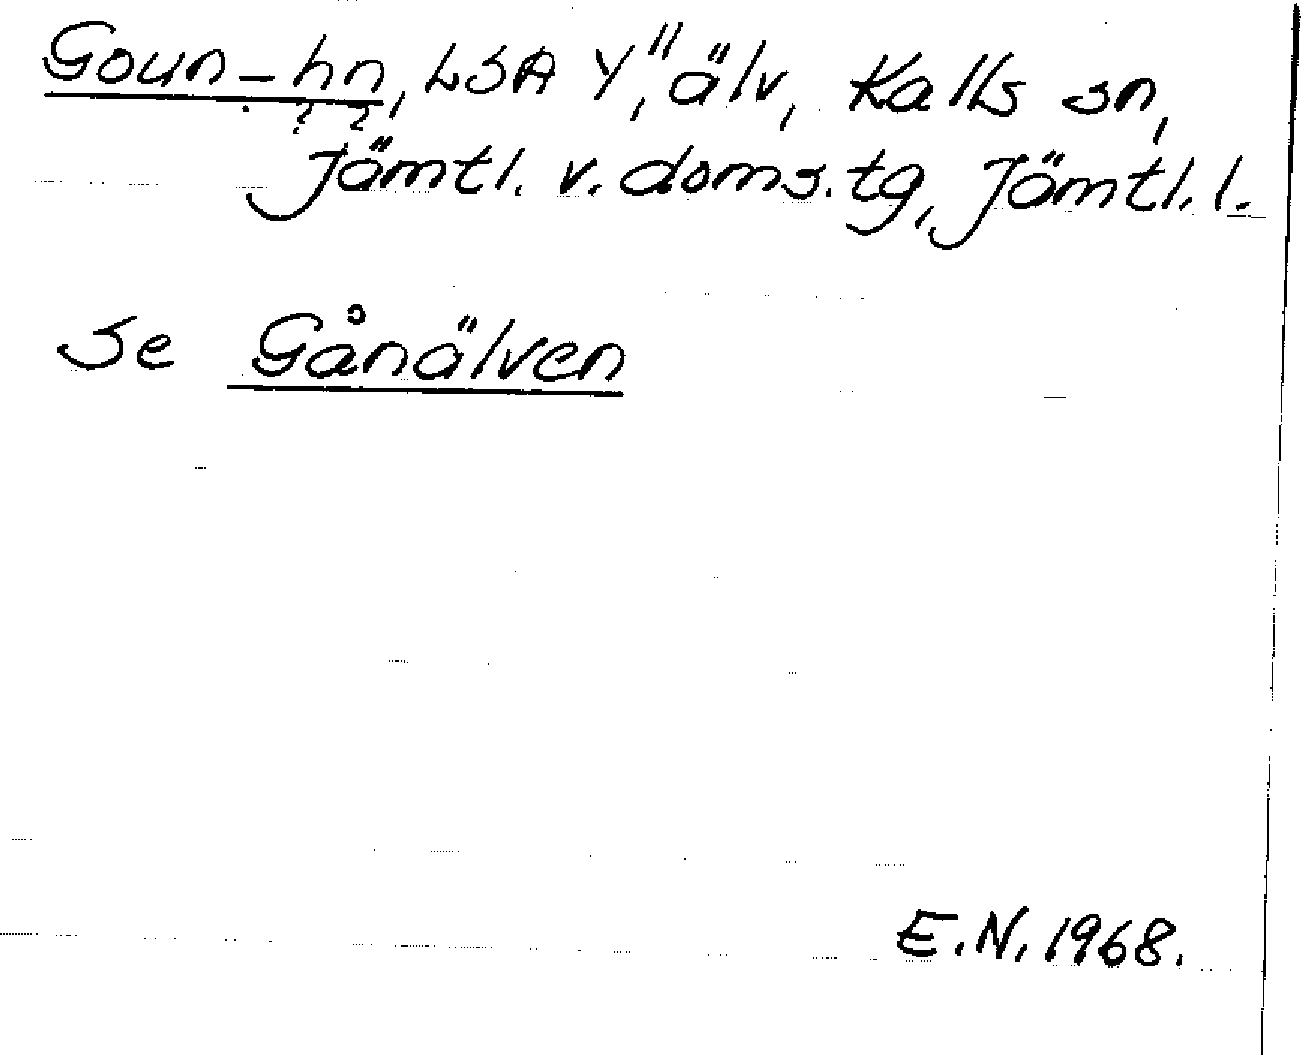 Goun-hn, LSA Y", älv, Kalls sn,
? ?
Jämtl. v. doms.tg, Jämtl. l.
Se Gånälven
E.N. 1968.